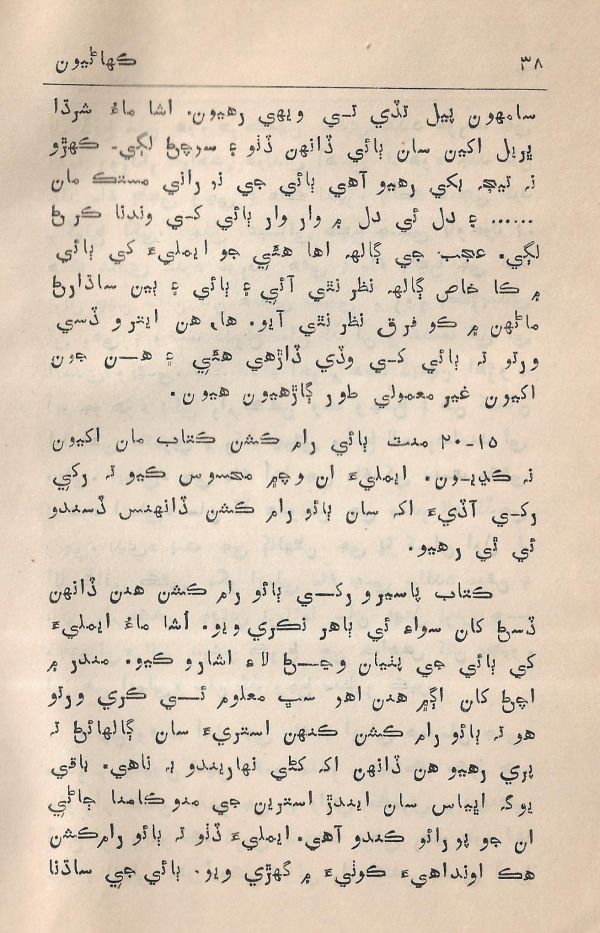 ۳۸ ڪهاڻيون
سامهون پيل تڏي تي ويهي رهيون. اشا ماءُ شرڌا
ڀريل اکين سان ٻائي ڏانهن ڏٺو ۽ سرچڻ لڳي. ڪهڙو
نه تيجه بکي رهيو آهي ٻائي جي نوراني مستڪ مان
...... ۽ دل ئي دل ۾ وار وار ٻائي کي وندنا ڪرڻ
لڳي. عجب جي ڳالهه اها هئي جو ايمليءَ کي ٻائي
۾ ڪا خاص ڳالهه نظر نٿي آئي ۽ ٻائي ۽ ٻين ساڌارڻ
ماڻهن ۾ ڪو فرق نظر نٿي آيو. ها، هن ايترو ڏسي
ورتو ته ٻائي کي وڏي ڏاڙهي هئي ۽ هن جون
اکيون غير معمولي طور ڳاڙهيون هيون.
۱۵-۲۰ منٽ ٻائي رام ڪشن ڪتاب مان اکيون
نه کڍيون. ايمليءَ ان وچ۾ محسوس ڪيو ته رکي
رکي آڏيءَ اک سان ٻائو رام ڪشن ڏانهنس ڏسندو
ئي ئي رهيو.
ڪتاب پاسيرو رکي ٻائو رام ڪشن هنن ڏانهن
ڏسڻ کان سواءِ ئي ٻاهر نڪري ويو. اُشا ماءُ ايمليءَ
کي ٻائي جي پٺيان وڃڻ لاءِ اشارو ڪيو. مندر ۾
اچڻ کان اڳ۾ هنن اهو سڀ معلوم ئي ڪري ورتو
هو ته ٻائو رام ڪشن ڪنهن استريءَ سان ڳالهائڻ ته
پري رهيو هن ڏانهن اک کڻي نهاريندو به ناهي. باقي
يوگ اڀياس سان ايندڙ استرين جي منوڪامنا ڄاڻي
ان جو پورائو ڪندو آهي. ايمليءَ ڏٺو ته ٻائو رام ڪشن
هڪ اونداهيءَ ڪوٺيءَ ۾ گهڙي ويو. ٻائي جي ساڌنا